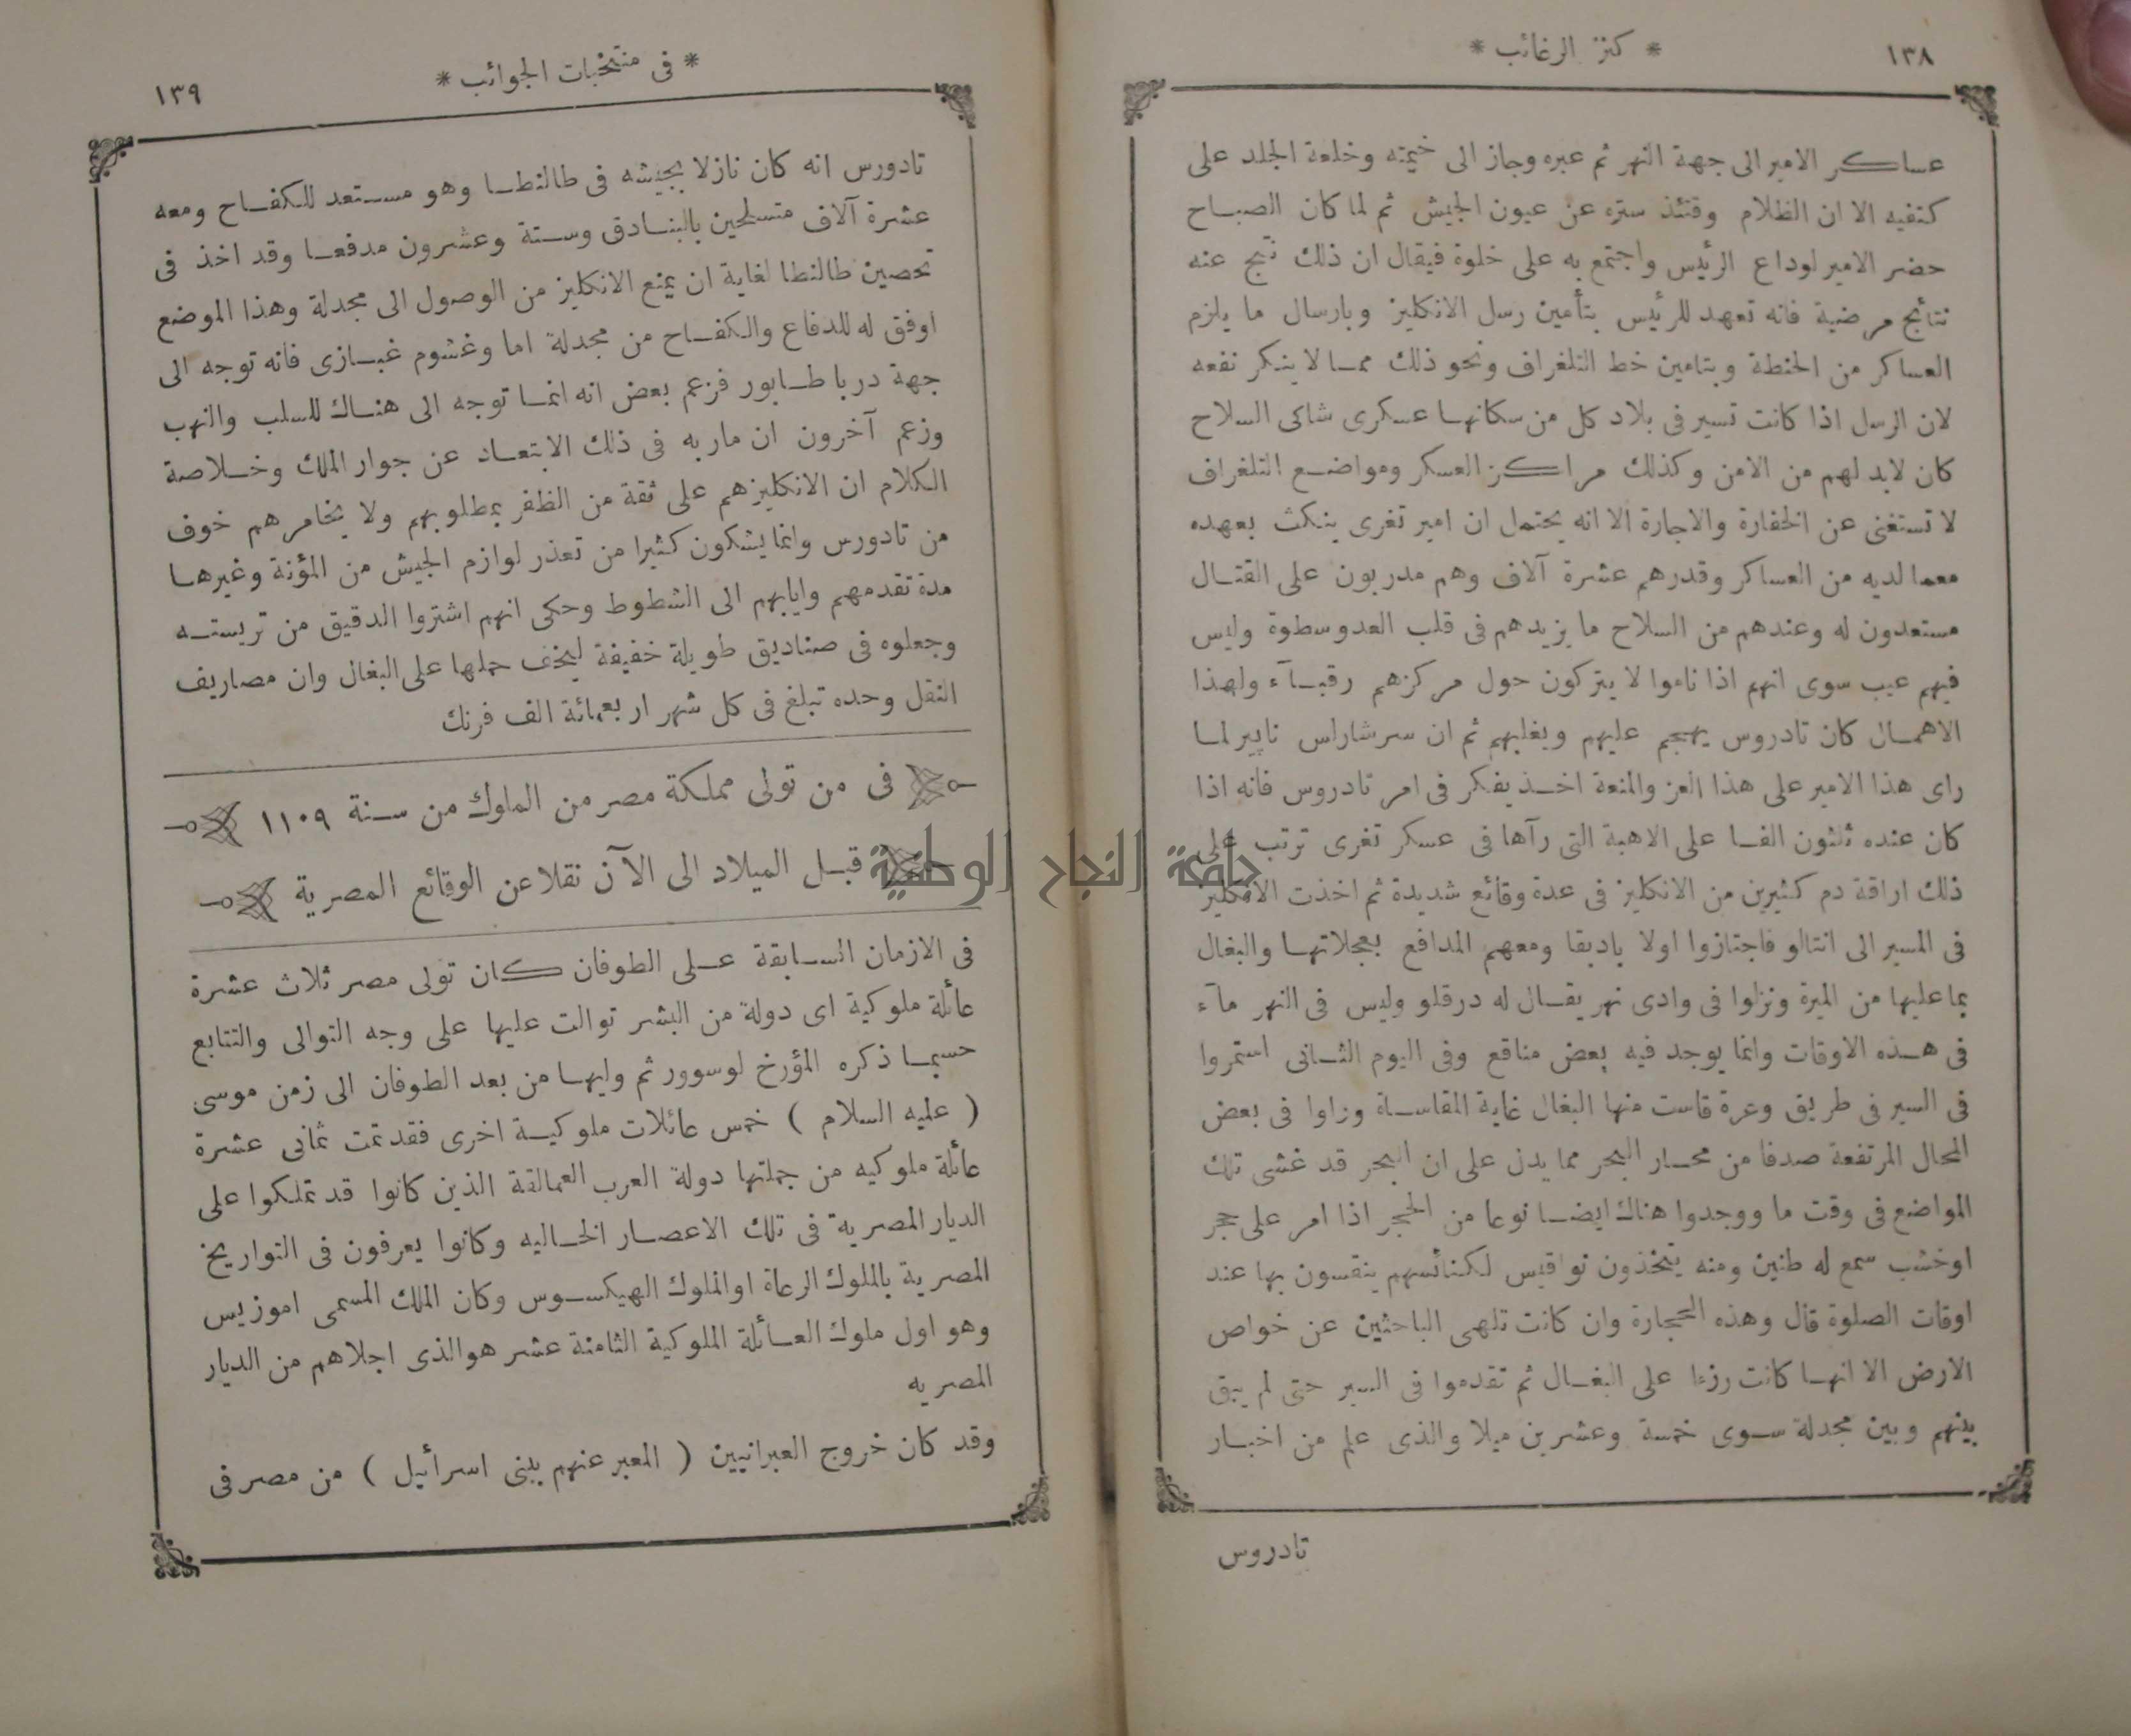 ١٣٨
* كنز الرغائب *
عساكر الامير الى جهة النهر ثم عبره وجاز الى خيمته وخلعة الجلد على
كتفيه الا ان الظلام وقتئذ ستره عن عيون الجيش ثم لما كان الصباح
حضر الامير لوداع الرئيس واجتمع به على خلوة فيقال ان ذلك نتج عنه
نتائج مرضية فانه تعهد للرئيس بتأمين رسل الانكليز وبارسال ما يلزم
العساكر من الحنطة وبتامين خط التلغراف ونحو ذلك مما لا ينكر نفعه
لان الرسل اذا كانت تسير فى بلاد كل من سكانها عسكرى شاكى السلاح
كان لابد لهم من الامن وكذلك مراكز العسكر ومواضع التلغراف
لا تستغنى عن الخفارة والاجارة الا انه يحتمل ان امير تغرى ينكث بعهده
معما لديه من العساكر وقدرهم عشرة آلاف وهم مدربون على القتال
مستعدون له وعندهم من السلاح ما يزيدهم فى قلب العدو سطوة وليس
فيهم عيب سوى انهم اذا ناموا لا يتركون حول مركزهم رقبآء ولهذا
الاهمال كان تادروس يهجم عليهم ويغلبهم ثم ان سر شاراس نايير لما
راى هذا الامير على هذا العز والمنعة اخذ يفكر فى امر تادروس فانه اذا
كان عنده ثلثون الفا على الاهبة التى رآها فى عسكر تغرى ترتب على
ذلك اراقة دم كثيرين من الانكليز فى عدة وقائع شديدة ثم اخذت الانكليز
فى المسير الى انتالو فاجتازوا اولا باديقا ومعهم المدافع بعجلاتها والبغال
بما عليها من الميرة ونزلوا فى وادى نهر يقال له درقلو وليس فى النهر مآء
فى هذه الاوقات وانما يوجد فيه بعض مناقع وفى اليوم الثانى استمروا
فى السير فى طريق وعرة قاست منها البغال غاية المقاساة وراوا فى بعض
المحال المرتفعة صدفا من محار البحر مما يدل على ان البحر قد غشى تلك
المواضع فى وقت ما ووجدوا هناك ايضا نوعا من الحجر اذا امر على حجر
اوخشب سمع له طنين ومنه يتخذون نواقيس لكنائسهم ينقسون بها عند
اوقات الصلوة قال وهذه الحجارة وان كانت تلهى الباحثين عن خواص
الارض الا انها كانت رزءا على البغال ثم تقدموا فى السير حتى لم يبق
بينهم وبين مجدلة سوى خمسة وعشرين ميلا والذى علم من اخبار
تادروس
* فى منتخبات الجوائب *
١٣٩
تادورس انه كان نازلا بجيشه فى طالنطا وهو مستعد للكفاح ومعه
عشرة آلاف متسلحين بالبنادق وستة وعشرون مدفعا وقد اخذ فى
تحصين طالنطا لغاية ان يمنع الانكليز من الوصول الى مجدلة وهذا الموضع
اوفق له للدفاع والكفاح من مجدلة اما وغشوم غبازى فانه توجه الى
جهة دربا طابور فزعم بعض انه انما توجه الى هناك للسلب والنهب
وزعم آخرون ان ماربه فى ذلك الابتعاد عن جوار الملك وخلاصة
الكلام ان الانكليزهم على ثقة من الظفر بمطلوبهم ولا يخامرهم خوف
من تادورس وانما يشكون كثيرا من تعذر لوازم الجيش من المؤنة وغيرها
مدة تقدمهم وايابهم الى الشطوط وحكى انهم اشتروا الدقيق من تريسته
وجعلوه فى صناديق طويلة خفيفة ليخف حملها على البغال وان مصاريف
النقل وحده تبلغ فى كل شهر اربعمائة الف فرنك
فى من تولى مملكة مصر من الملوك من سنة ١١٠٩
قبل الميلاد الى الآن نقلا عن الوقائع المصرية
فى الازمان السابقة على الطوفان كان تولى مصر ثلاث عشرة
عائلة ملوكية اى دولة من البشر توالت عليها على وجه التوالى والتتابع
حسبما ذكره المؤرخ لوسوور ثم وليها من بعد الطوفان الى زمن موسى
( عليه السلام ) خمس عائلات ملوكية اخرى فقد تمت ثمانى عشرة
عائلة ملوكيه من جملتها دولة العرب العمالقة الذين كانوا قد تملكوا على
الديار المصرية فى تلك الاعصار الخاليه وكانوا يعرفون فى التواريخ
المصرية بالملوك الرعاة اوالملوك الهيكسوس وكان الملك المسمى اموزيس
وهو اول ملوك العائلة الملوكية الثامنة عشر هوالذى اجلاهم من الديار
المصريه
وقد كان خروج العبرانيين ( المعبر عنهم ببنى اسرأيل ) من مصر فى
جامعة النجاح الوطنية